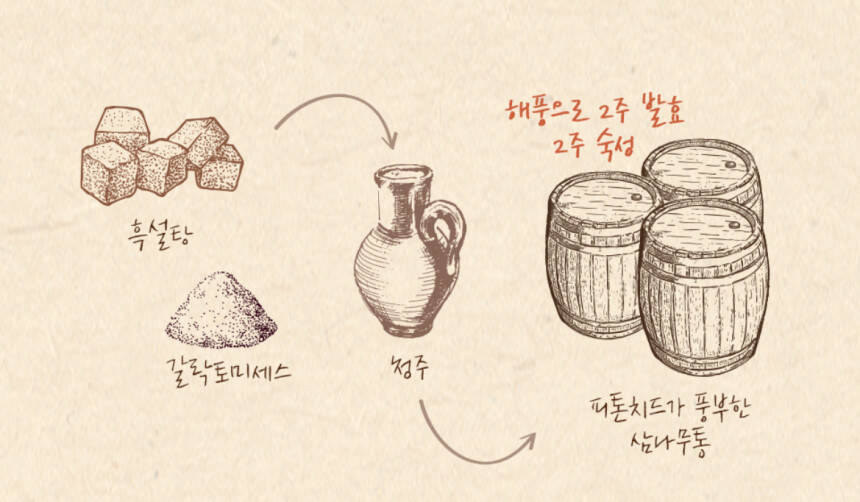 해풍으로 2주 발효
2주 숙성
흑설탕
갈락토미세스
청주
피톤치드가 풍부한
삼나무통